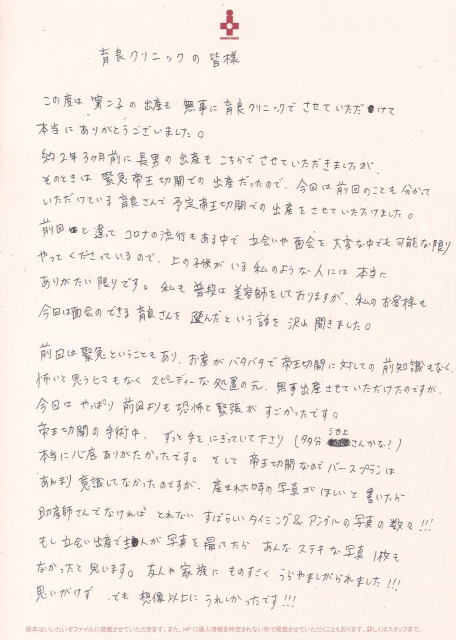 育良クリニックの皆様
この度は第二子の出産も無事に育良クリニックでさせていただけて
本当にありがとうございました。
約2年3ヶ月前に長男の出産もこちらでさせていただきましたが、
そのときは緊急帝王切開での出産だったので、今回は前回のことも分かって
いただけている育良さんで予定帝王切開での出産をさせていただけました。
前回と違ってコロナの流行もある中で立会いや面会を大変な中でも可能な限り
やってくださっているので、上の子供がいる私のような人には本当に
ありがたい限りです。私も普段は美容師をしておりますが、私のお客様も
今回は面会のできる育良さんを選んだという話を沢山聞きました。
前回は緊急ということもあり、お産がバタバタで帝王切開に対しての前知識もなく、
怖いと思うヒマもなくスピーディーな処置の元、無事出産させていただけたのですが、
今回はやっぱり前回よりも恐怖と緊張がすごかったです。
帝王切開の手術中、ずっと手をにぎっていて下さり(多分池上さんかな?)
本当に心底ありがたかったです。そして帝王切開なのでバースプランは
あんまり意識してなかったのですが、産まれた時の写真がほしいと書いたら
助産師さんでなければとれないすばらしいタイミング&アングルの写真の数々!!!
もし立会い出産で主人が写真を撮ってたらあんなステキな写真1枚も
なかったと思います。友人や家族にものすごくうらやましがられました!!!
思いがけず、でも想像以上にうれしかったです!!!
原本はいいたいぞファイルに掲載させていただきます。また、HPに個人情報を特定されない形で掲載させていただくこともあります。詳しくはスタッフまで。